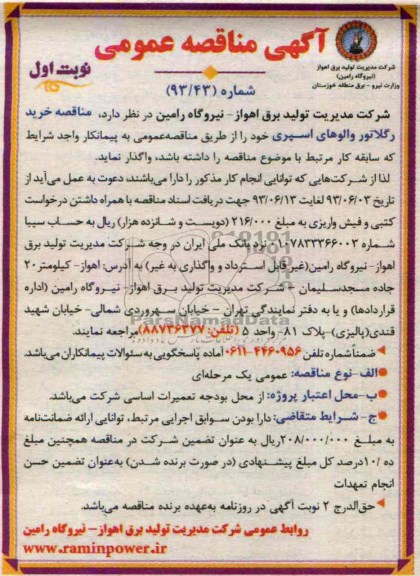 آگهی مناقصه عمومی
نوبت اول
شماره (۹۳/۴۳)
شرکت مدیریت تولید برق اهواز
(نیروگاه رامین)
وزارت نیرو - برق منطقه خوزستان
شرکت مدیریت تولید برق اهواز- نیروگاه رامین در نظر دارد، مناقصه خرید
رگلاتور والوهای اسپری خود را از طریق مناقصه‌عمومی به پیمانکار واجد شرایط
که سابقه کار مرتبط با موضوع مناقصه را داشته باشد، واگذار نماید.
لذا از شرکت‌هایی که توانایی انجام کار مذکور را دارا می‌باشند، دعوت به عمل می‌آید از
تاریخ ۹۳/۰۶/۰۲ لغایت ۹۳/۰۶/۱۳ جهت دریافت اسناد مناقصه با همراه داشتن درخواست
کتبی و فیش واریزی به مبلغ ۲۱۶/۰۰۰ (دویست و شانزده هزار) ریال به حساب سیبا
شماره ۰۱۰۷۸۳۳۳۶۶۰۰۳ نزد بانک ملی ایران در وجه شرکت مدیریت تولید برق
اهواز- نیروگاه رامین (غیر قابل استرداد و واگذاری به غیر) به آدرس: اهواز- کیلومتر۲۰
جاده مسجدسلیمان - شرکت مدیریت تولید برق اهواز- نیروگاه رامین (اداره
قراردادها) و یا به دفتر نمایندگی تهران - خیابان سهروردی شمالی- خیابان شهید
قندی(پالیزی)-پلاک ۸۱- واحد ۵ (تلفن: ۸۸۷۳۶۳۷۷) مراجعه نمایند.
ParsNamadData
ضمناً شماره تلفن ۴۴۶۰۹۵۶-۰۶۱۱ آماده پاسخگویی به سئوالات پیمانکاران می‌باشد.
الف-نوع مناقصه: عمومی یک مرحله‌ای
ب-محل اعتبار پروژه: از محل بودجه تعمیرات اساسی شرکت می‌باشد.
ج- شرایط متقاضی: دارا بودن سوابق اجرایی مرتبط، توانایی ارائه ضمانت‌نامه
به مبلغ ۲۰۸/۰۰۰/۰۰۰ ریال به عنوان تضمین شرکت در مناقصه همچنین مبلغ
ده /۱۰درصد کل مبلغ پیشنهادی (در صورت برنده شدن) به‌عنوان تضمین حسن
انجام تعهدات
حق‌الدرج ۲ نوبت آگهی در روزنامه به‌عهده برنده مناقصه می‌باشد.
روابط عمومی شرکت مدیریت تولید برق اهواز- نیروگاه رامین
www.raminpower.ir